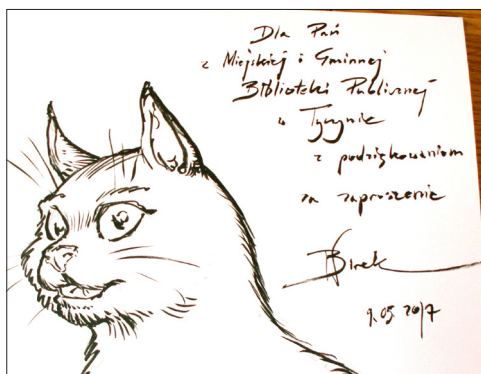 Dla Pań
z Miejskiej i Gminnej
Biblioteki Publicznej
w Tyczynie
z podziękowaniem
za zaproszenie
Birek
9.05.2017